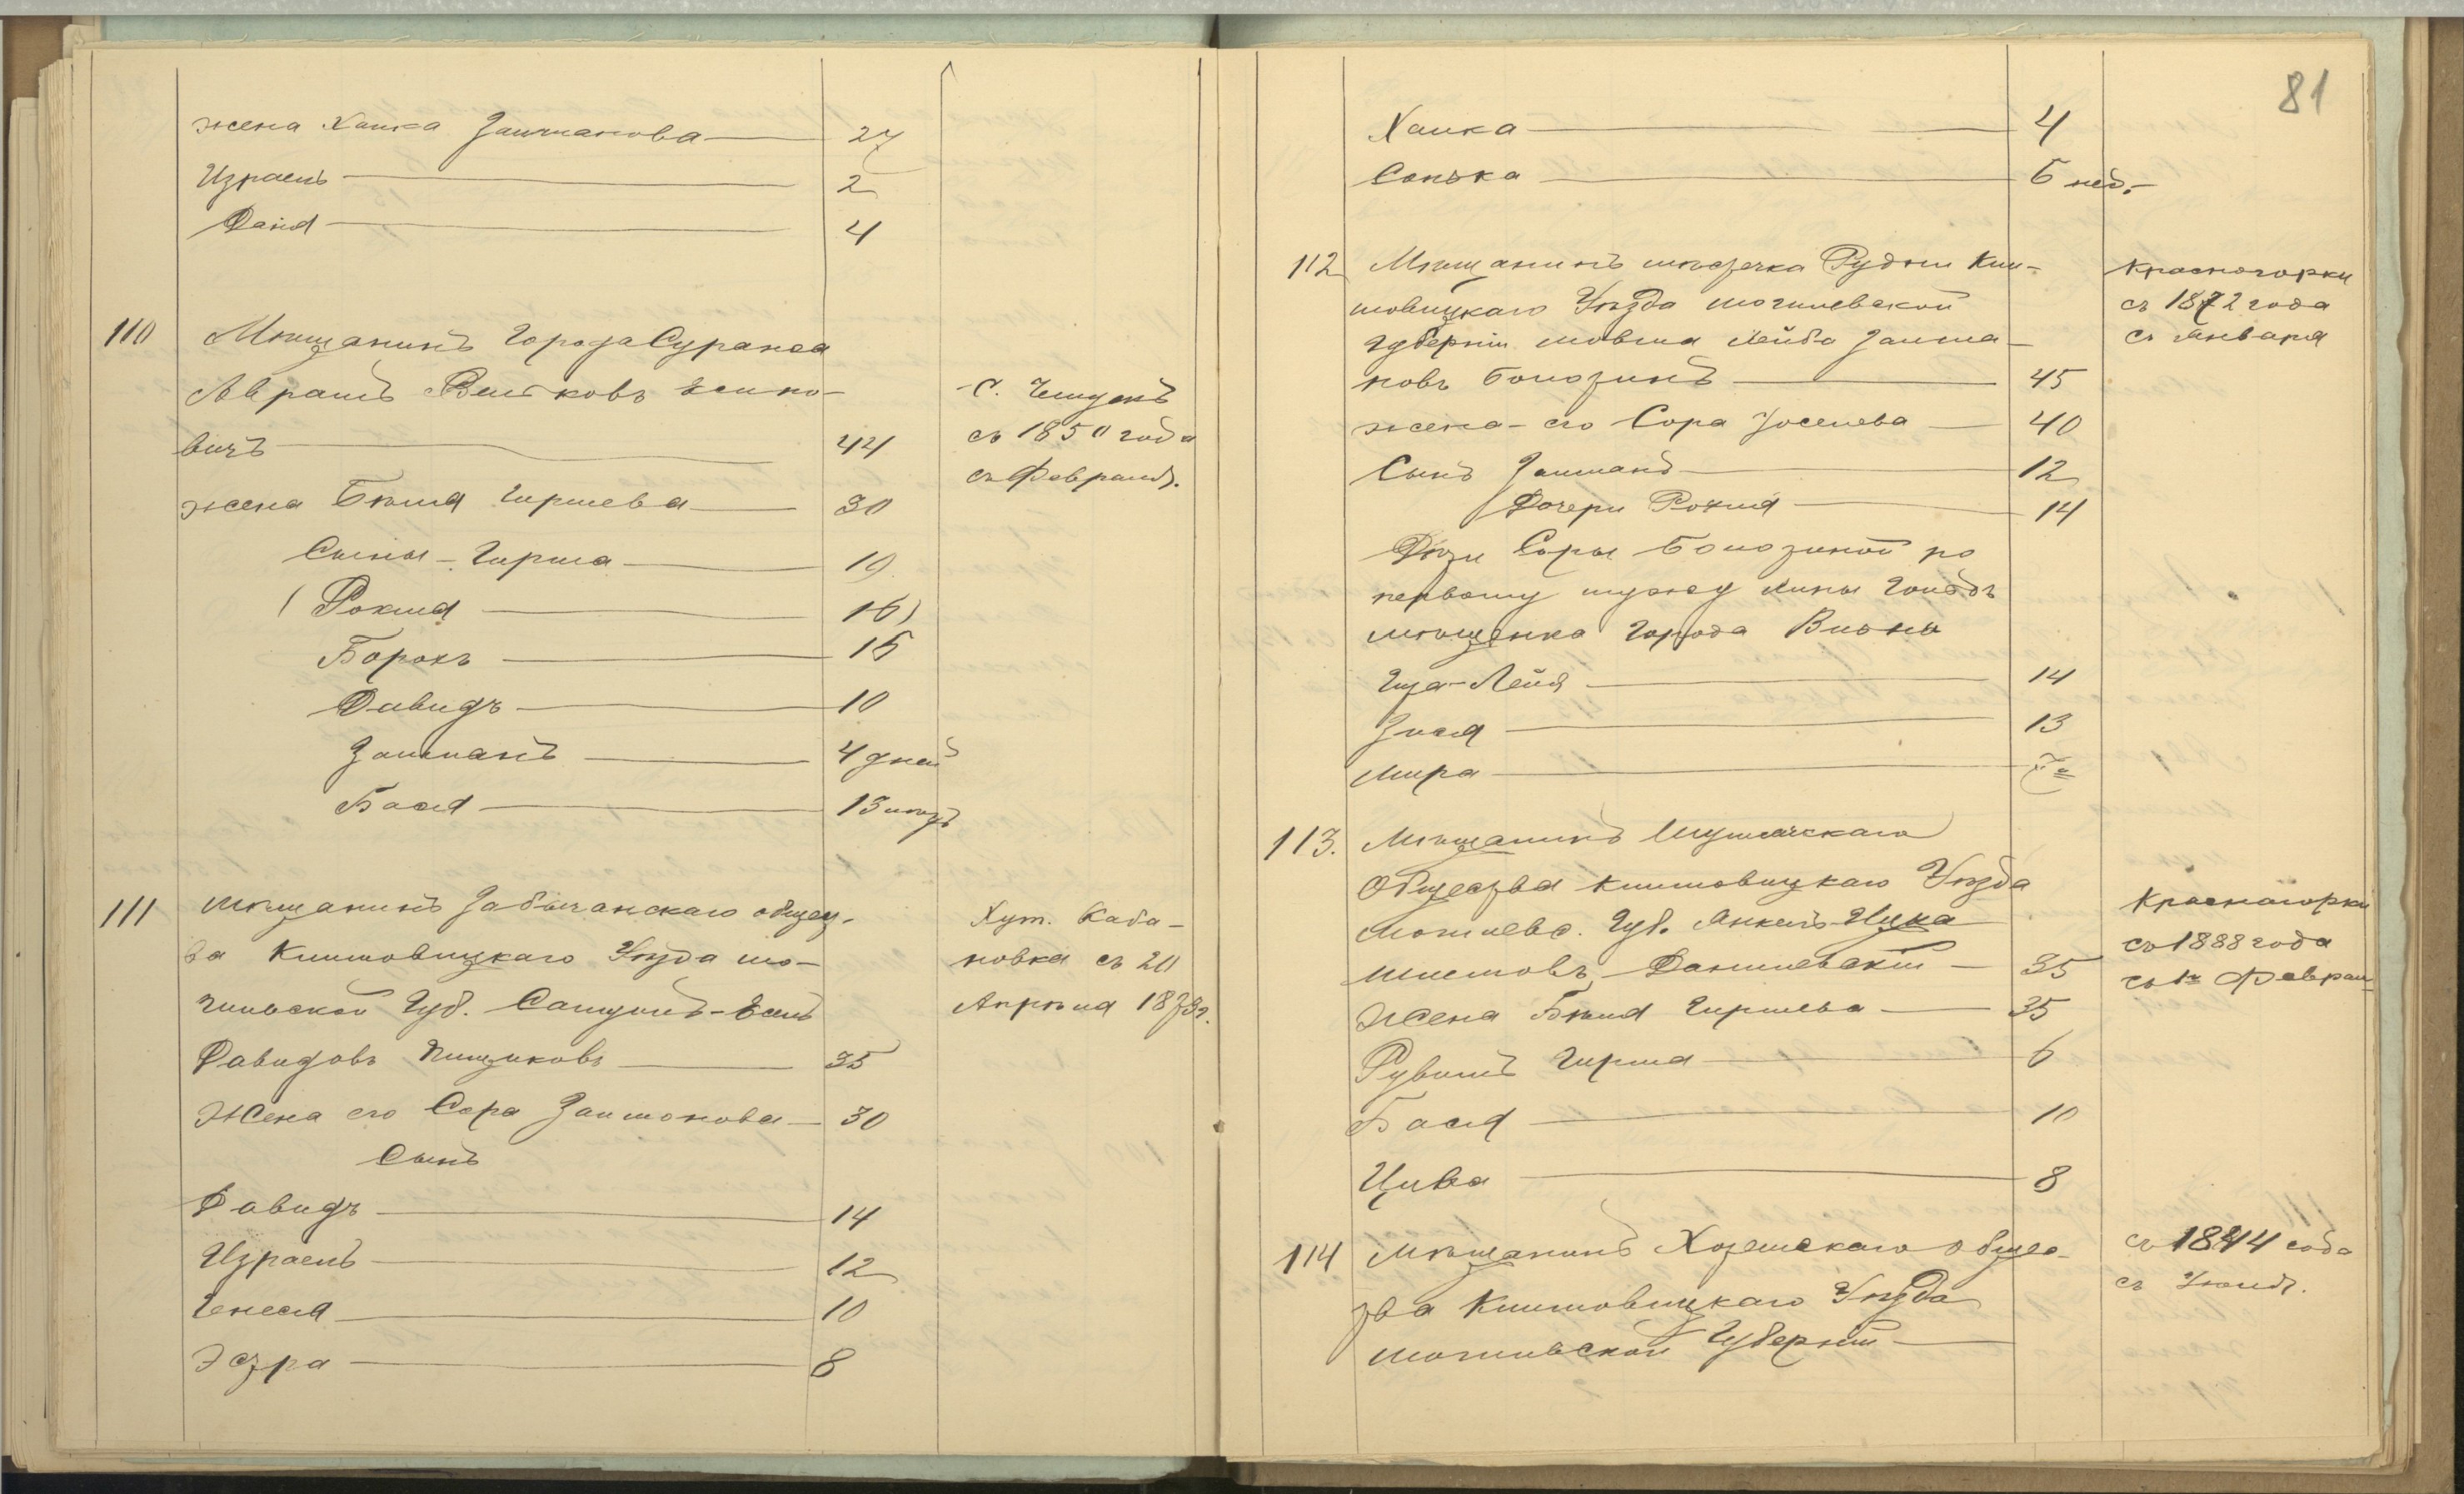 жена Хаика Залмановa 27
Израель 2
Даня 4
110 Мѣщанинъ Города Суража
Аврамъ
вичъ 44
С.
съ 1850 года
съ Февраля.
жена Бейля Гиршева 30
Сыны - Гирша 19
(Рохля 16)
Борохъ 15
Давидъ 10
Залманъ 4 дней
Бася 13 лѣтъ
111 Мѣщанинъ Забычанскаго общес-
ва Климовицкаго Уѣзда мо-
гилевской Губ. Самуилъ-
Давидовъ 35
Хут. Каба-
новка съ 20
Апрѣля 187 г.
Жена его Сора Залмонова 30
Сынъ
Давидъ 14
Израель 12
Генеся 10
Эстра 8
81
Хаика 4
Сонька 5 нед.
112 Мѣщанинъ мѣстечка Рудни Кли-
мовицкаго Уѣзда могилевской
губерніи мовша Лейба Залма-
новъ 45
Красногорки
съ 1872 года
съ Января
жена его Сора Іоселева 40
Сынъ Залманъ 12
Дочери Рохля 14
Дѣти Соры по
первому мужу
мѣщанка Города Вильны
Лейя 14
Зися 13
Мира
113. Мѣщанинъ
Общества климовицкаго Уѣзда
Могилевс. Губ. Янкель
Данилевскій 35
Красногорки
съ 1888 года
съ 1го Феврал
Жена Бейля Гиршева 35
Рувимъ Гирша 6
Бася 10
Цива 8
114 Мѣщанинъ общес-
тва Климовицкаго Уѣзда
могилевской Губерніи
съ года
съ Іюля.